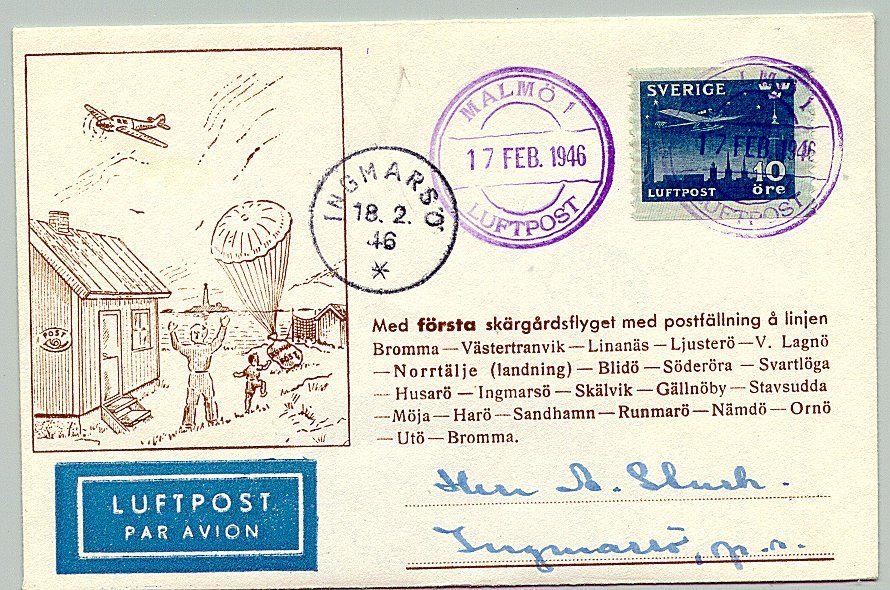 MALMÖ 1
17 FEB. 1946
LUFTPOST
SVERIGE
10
öre
LUFTPOST
MALMÖ 1
17 FEB. 1946
LUFTPOST
INGMARSÖ
18. 2.
46
*
POST
Med första skärgårdsflyget med postfällning å linjen
Bromma—Västertranvik—Linanäs—Ljusterö—V. Lagnö
—Norrtälje (landning)—Blidö—Söderöra—Svartlöga
—Husarö—Ingmarsö—Skälvik—Gällnöby—Stavsudda
—Möja—Harö—Sandhamn—Runmarö—Nämdö—Ornö
—Utö—Bromma.
LUFTPOST
PAR AVION
Herr A.
Ingmarsö, p.r.